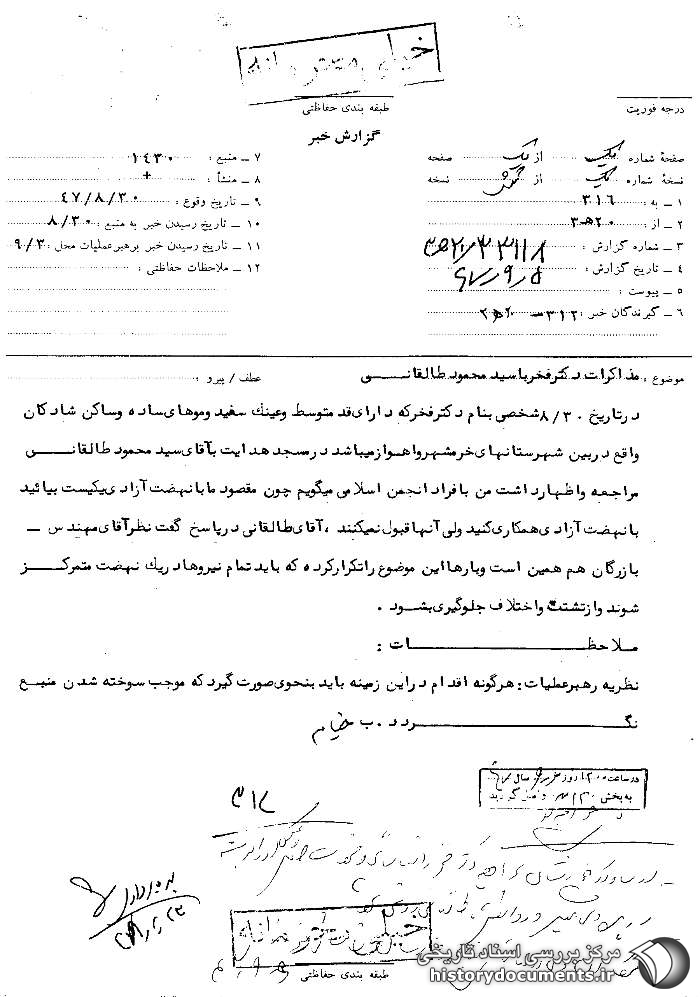 خیلی محرمانه
طبقه بندی حفاظتی
درجه فوریت
گزارش خبر
صفحهٔ شماره یک از یک صفحه
نسخهٔ شماره یک از شش نسخه
۱ ـ به : ۳۱۶
۲ ـ از : ۲۰ ه‍ ۳
۳ ـ شماره گزارش :
۴ ـ تاریخ گزارش : ۴۷/۹/۵
۵ ـ پیوست :
۶ ـ گیرندگان خبر : ۳۱۲ ـ
۷ ـ منبع : ۱۴۳۰
۸ ـ منشأ : +
۹ ـ تاریخ وقوع : ۴۷/۸/۳۰
۱۰ ـ تاریخ رسیدن خبر به منبع : ۸/۳۰
۱۱ ـ تاریخ رسیدن خبر برهبر عملیات محل : ۹/۳
۱۲ ـ ملاحظات حفاظتی :
موضوع : مذاکرات دکتر فخر با سید محمود طالقانی
عطف / پیرو :
در تاریخ ۸/۳۰ شخصی بنام دکتر فخر که دارای قد متوسط وعینک سفید وموهای ساده وساکن شادکان
واقع در بین شهرستانهای خرمشهر واهواز میباشد در مسجد هدایت بآقای سید محمود طالقانی
مراجعه واظهار داشت من با فراد انجمن اسلامی میگویم چون مقصود ما با نهضت آزادی یکیست بیائید
با نهضت آزادی همکاری کنید ولی آنها قبول نمیکنند ، آقای طالقانی در پاسخ گفت نظر آقای مهندس ـ
بازرگان هم همین است وبارها این موضوع را تکرار کرده که باید تمام نیروها در یک نهضت متمرکز
شوند واز تشتت واختلاف جلوگیری بشود .
ملاحظات :
نظریه رهبر عملیات : هرگونه اقدام در این زمینه باید بنحوی صورت گیرد که موجب سوخته شدن منبع
نگردد . ب خیام
در ساعت روز سال
به بخش ۳۱۲ واصل گردید
۳۱۲
خیلی محرمانه
طبقه بندی حفاظتی
مرکز بررسی اسناد تاریخی
historydocuments.ir